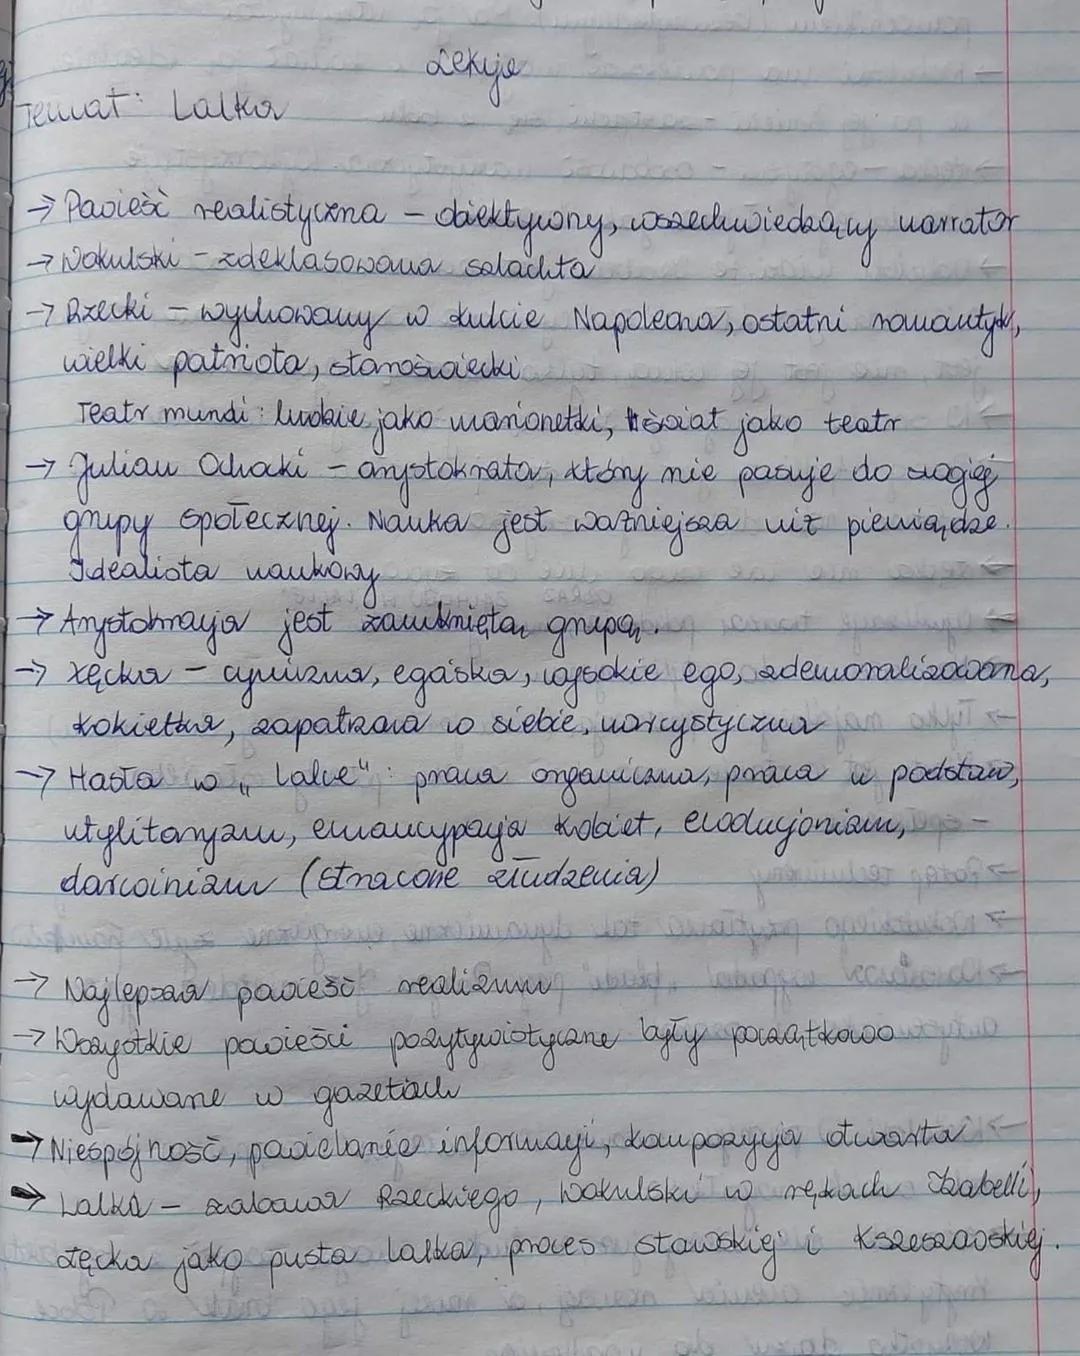 Lekcja
Temat: Lalka
→ Powieść realistyczna – obiektywny, wszechwiedzący narrator
→ Wokulski – zdeklasowana szlachta
→ Rzecki – wychowany w kulcie Napoleona, ostatni romantyk,
wielki patriota, staroświecki
Teatr mundi: ludzie jako marionetki, świat jako teatr
→ Julian Ochocki – arystokrata, który nie pasuje do swojej
grupy społecznej. Nauka jest ważniejsza niż pieniądze.
Idealista naukowy
→ Arystokracja jest zamkniętą grupą.
→ Łęcka – cyniczna, egoistka, wysokie ego, zdemoralizowana,
kokietka, zapatrzona w siebie, narcystyczna
→ Hasła w „Lalce": praca organiczna, praca u podstaw,
utylitaryzm, emancypacja kobiet, ewolucjonizm,
darwinizm (stracone złudzenia)
→ Najlepsza powieść realizmu
→ Wszystkie powieści pozytywistyczne były początkowo
wydawane w gazetach
→ Niespójność, powielanie informacji, kompozycja otwarta
→ Lalka – zabawa Rzeckiego, Wokulski w rękach Izabelli,
Łęcka jako pusta lalka, proces Stawskiej i Krzeszowskiej.